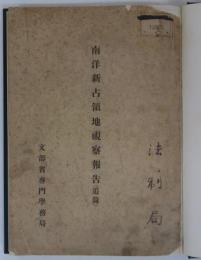 南洋新占領地視察報告(追錄)
文部省專門學務局
法制局